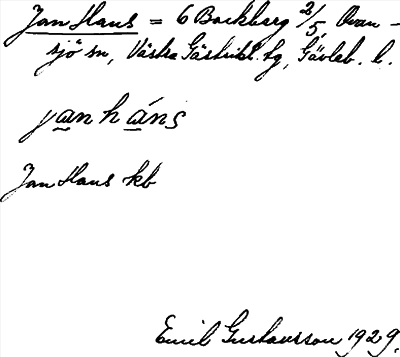 Jan Hans = 6 Backberg 2/5, Ovan-
sjö sn, Västra Gästrikl. tg, Gävleb. l.
ja̲n há̲ns
Jan Hans kb
Emil Gustavsson 1929.